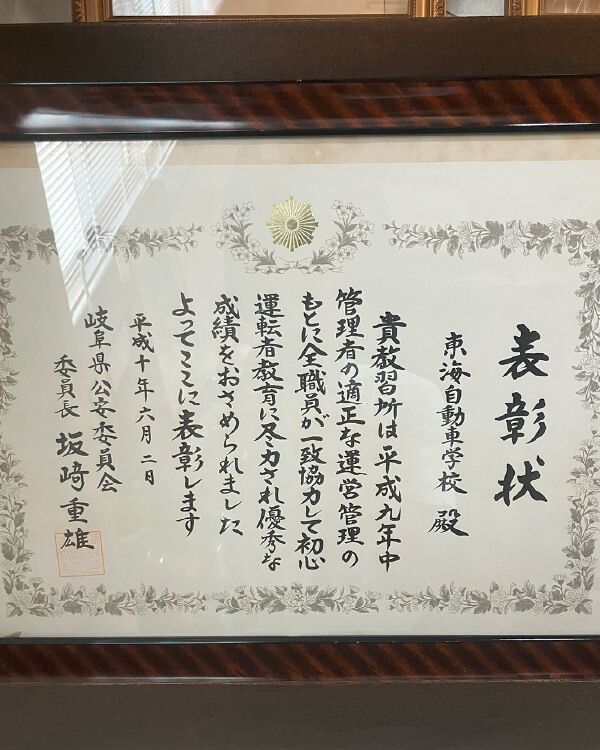 表彰状
東海自動車学校 殿
貴教習所は平成九年中
管理者の適正な運営管理の
もとに全職員が一致協力して初心
運転者教育に尽力され優秀な
成績をおさめられました
よってここに表彰します
平成十年六月二日
岐阜県公安委員会
委員長 坂崎重雄